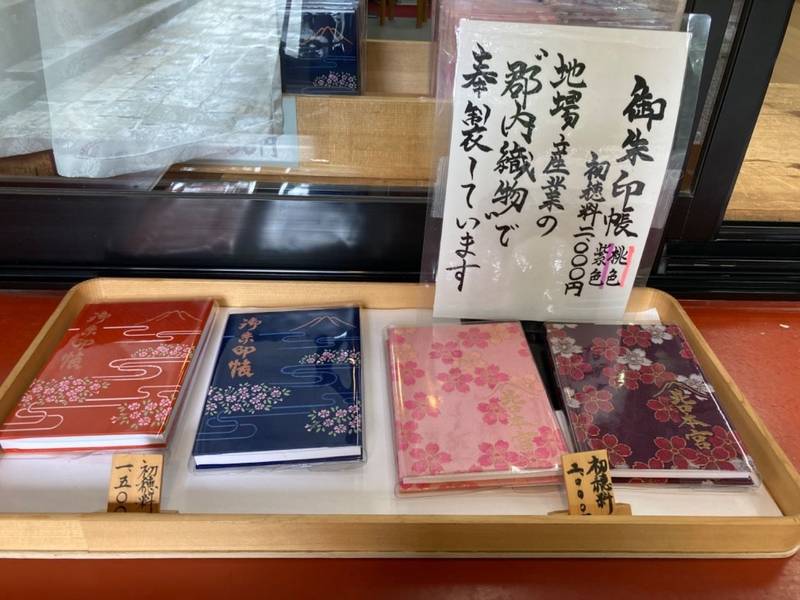 御朱印帳
桃色
紫色
初穂料二〇〇〇円
地場産業の
"郡内織物"で
奉製しています
御朱印帳
御朱印帳
宮本宮
初穂料
一、五〇
初穂料
二、〇〇〇